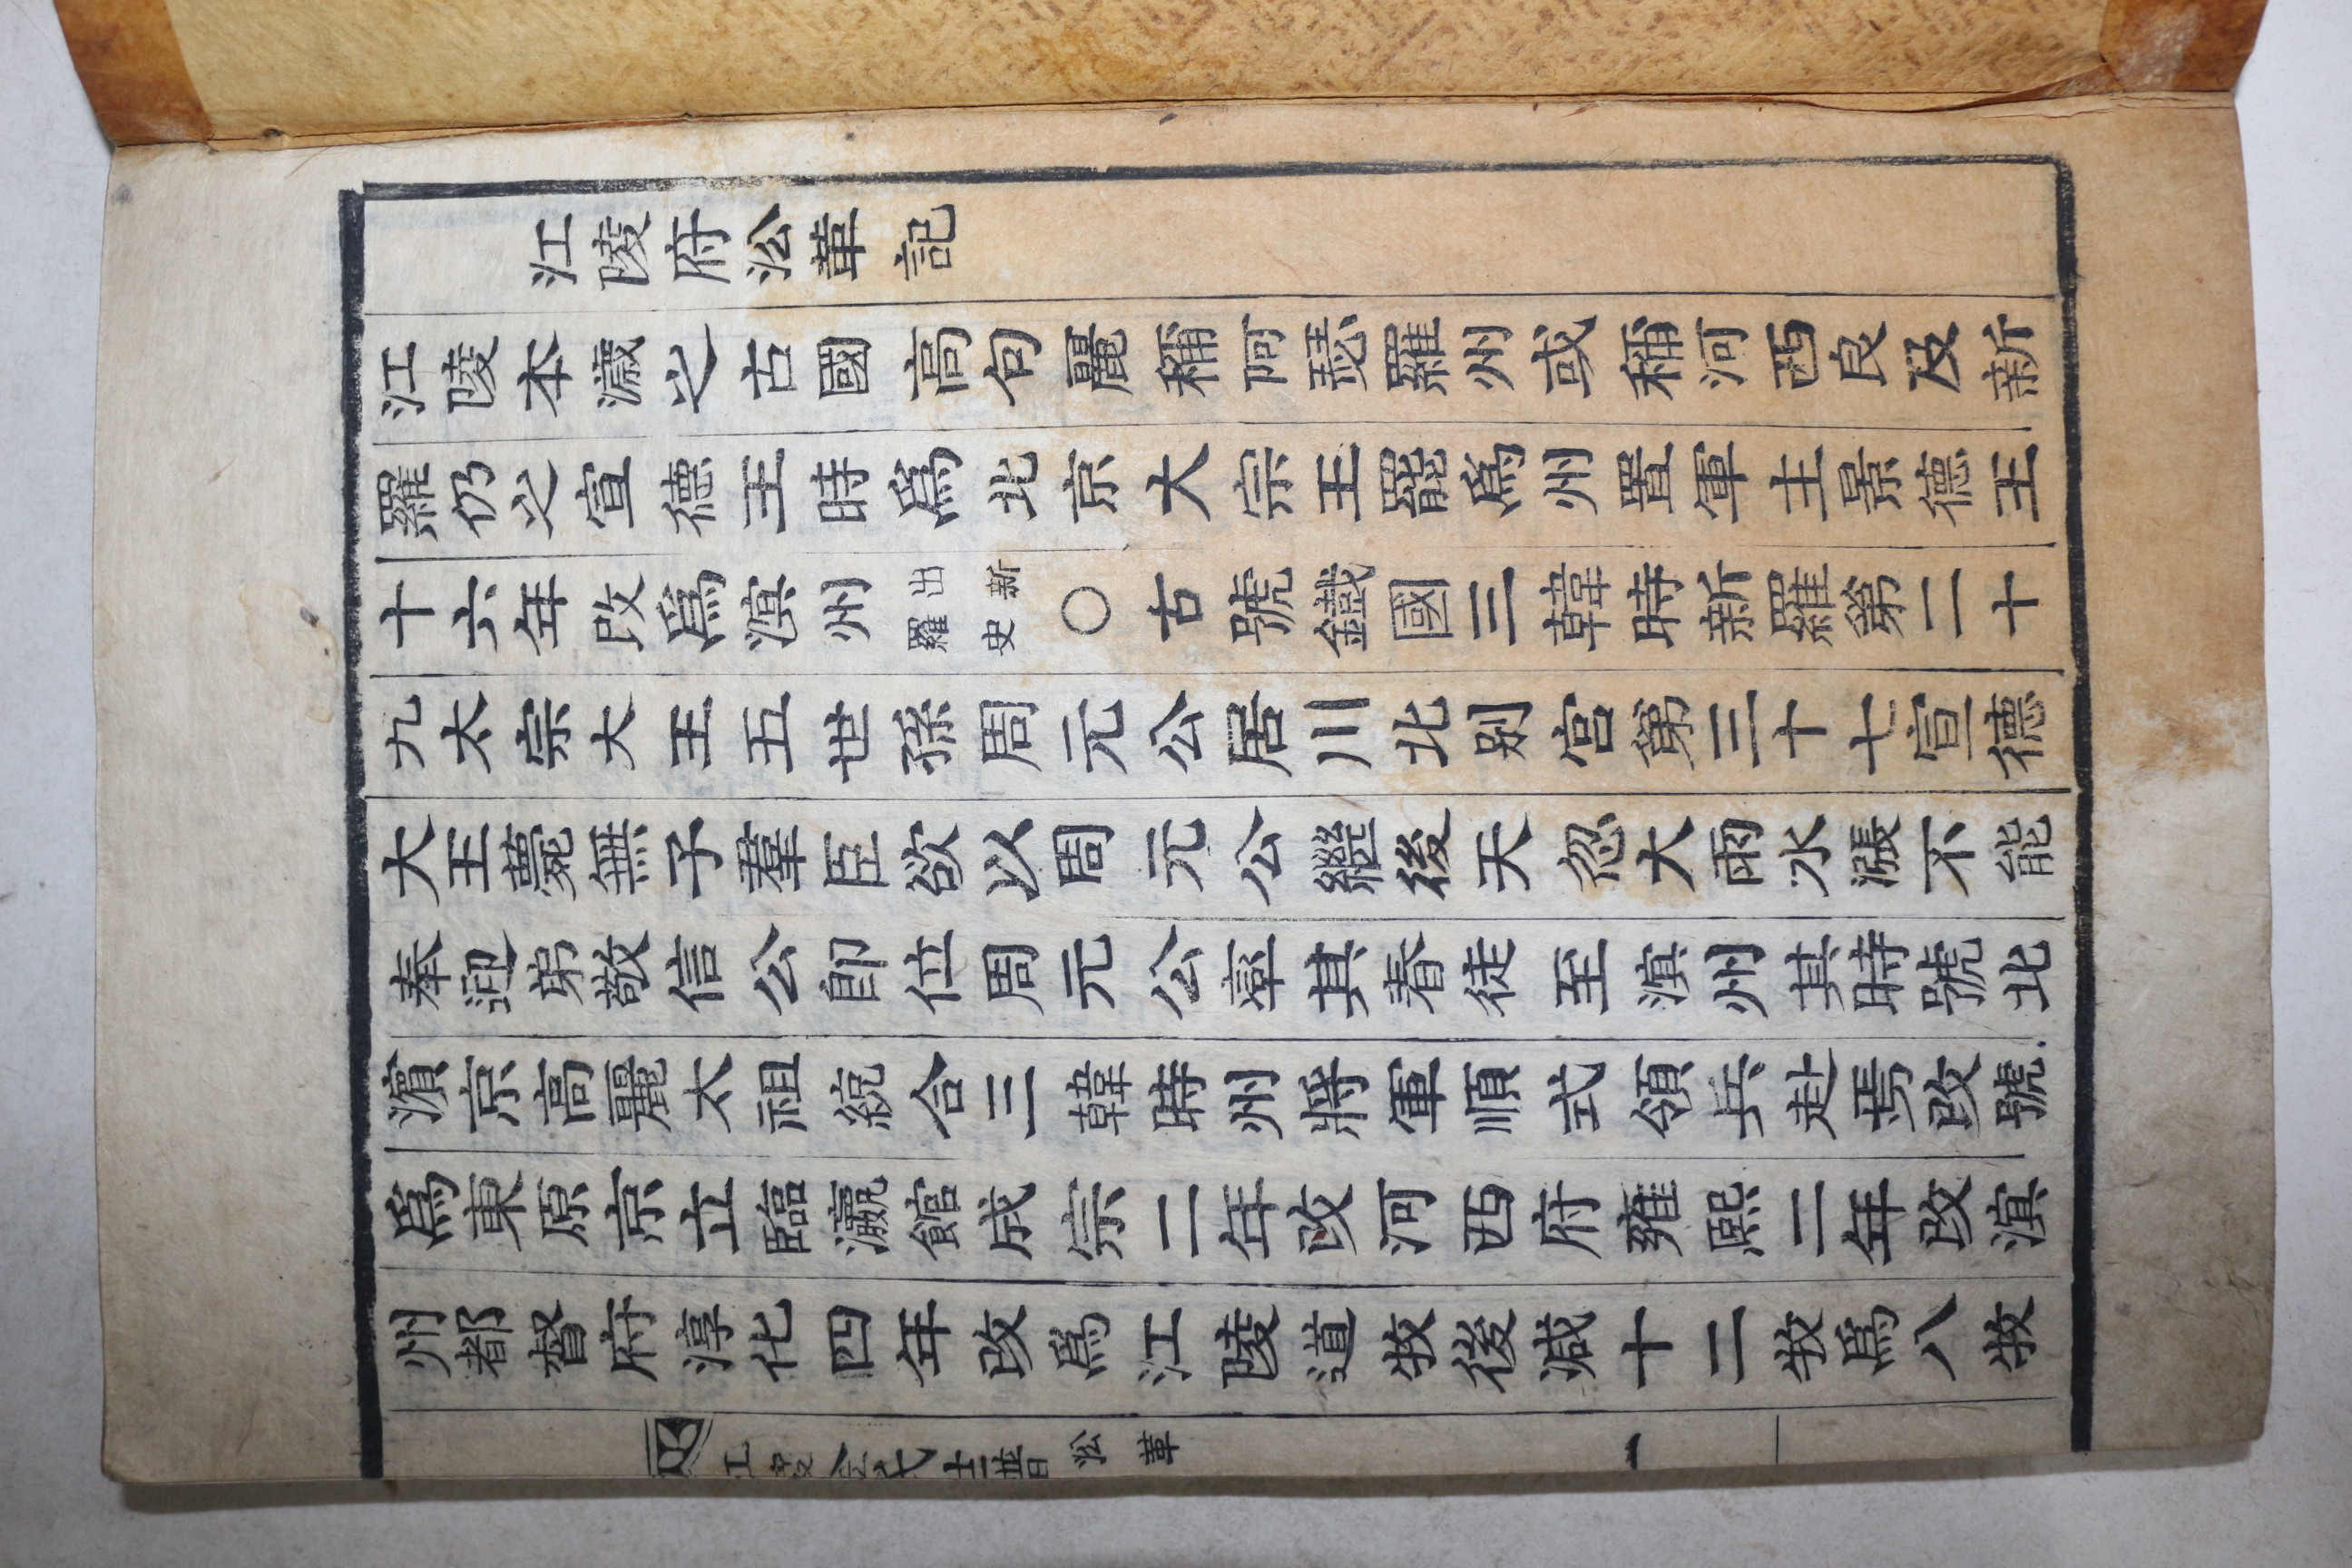 江陵府沿革記
江陵本濊之古國高句麗稱阿瑟羅州或稱河西良及新
羅仍之宣德王時爲北京大宗王罷爲州置軍主景德王
十六年改爲溟州出新羅史○古號鐵國三韓時新羅第二十
九太宗大王五世孫周元公居川北别宮第三十七宣德
大王薨無子羣臣欲以周元公繼後天忽大雨水漲不能
奉迎弟敬信公卽位周元公率其眷徒至溟州其時號北
濱京高麗太祖統合三韓時州將軍順式領兵赴焉改號
爲東原京立臨瀛館成宗二年改河西府雍熙二年改溟
州都督府淳化四年改爲江陵道牧後减十二牧爲八牧
江陵金氏世譜 沿革 一